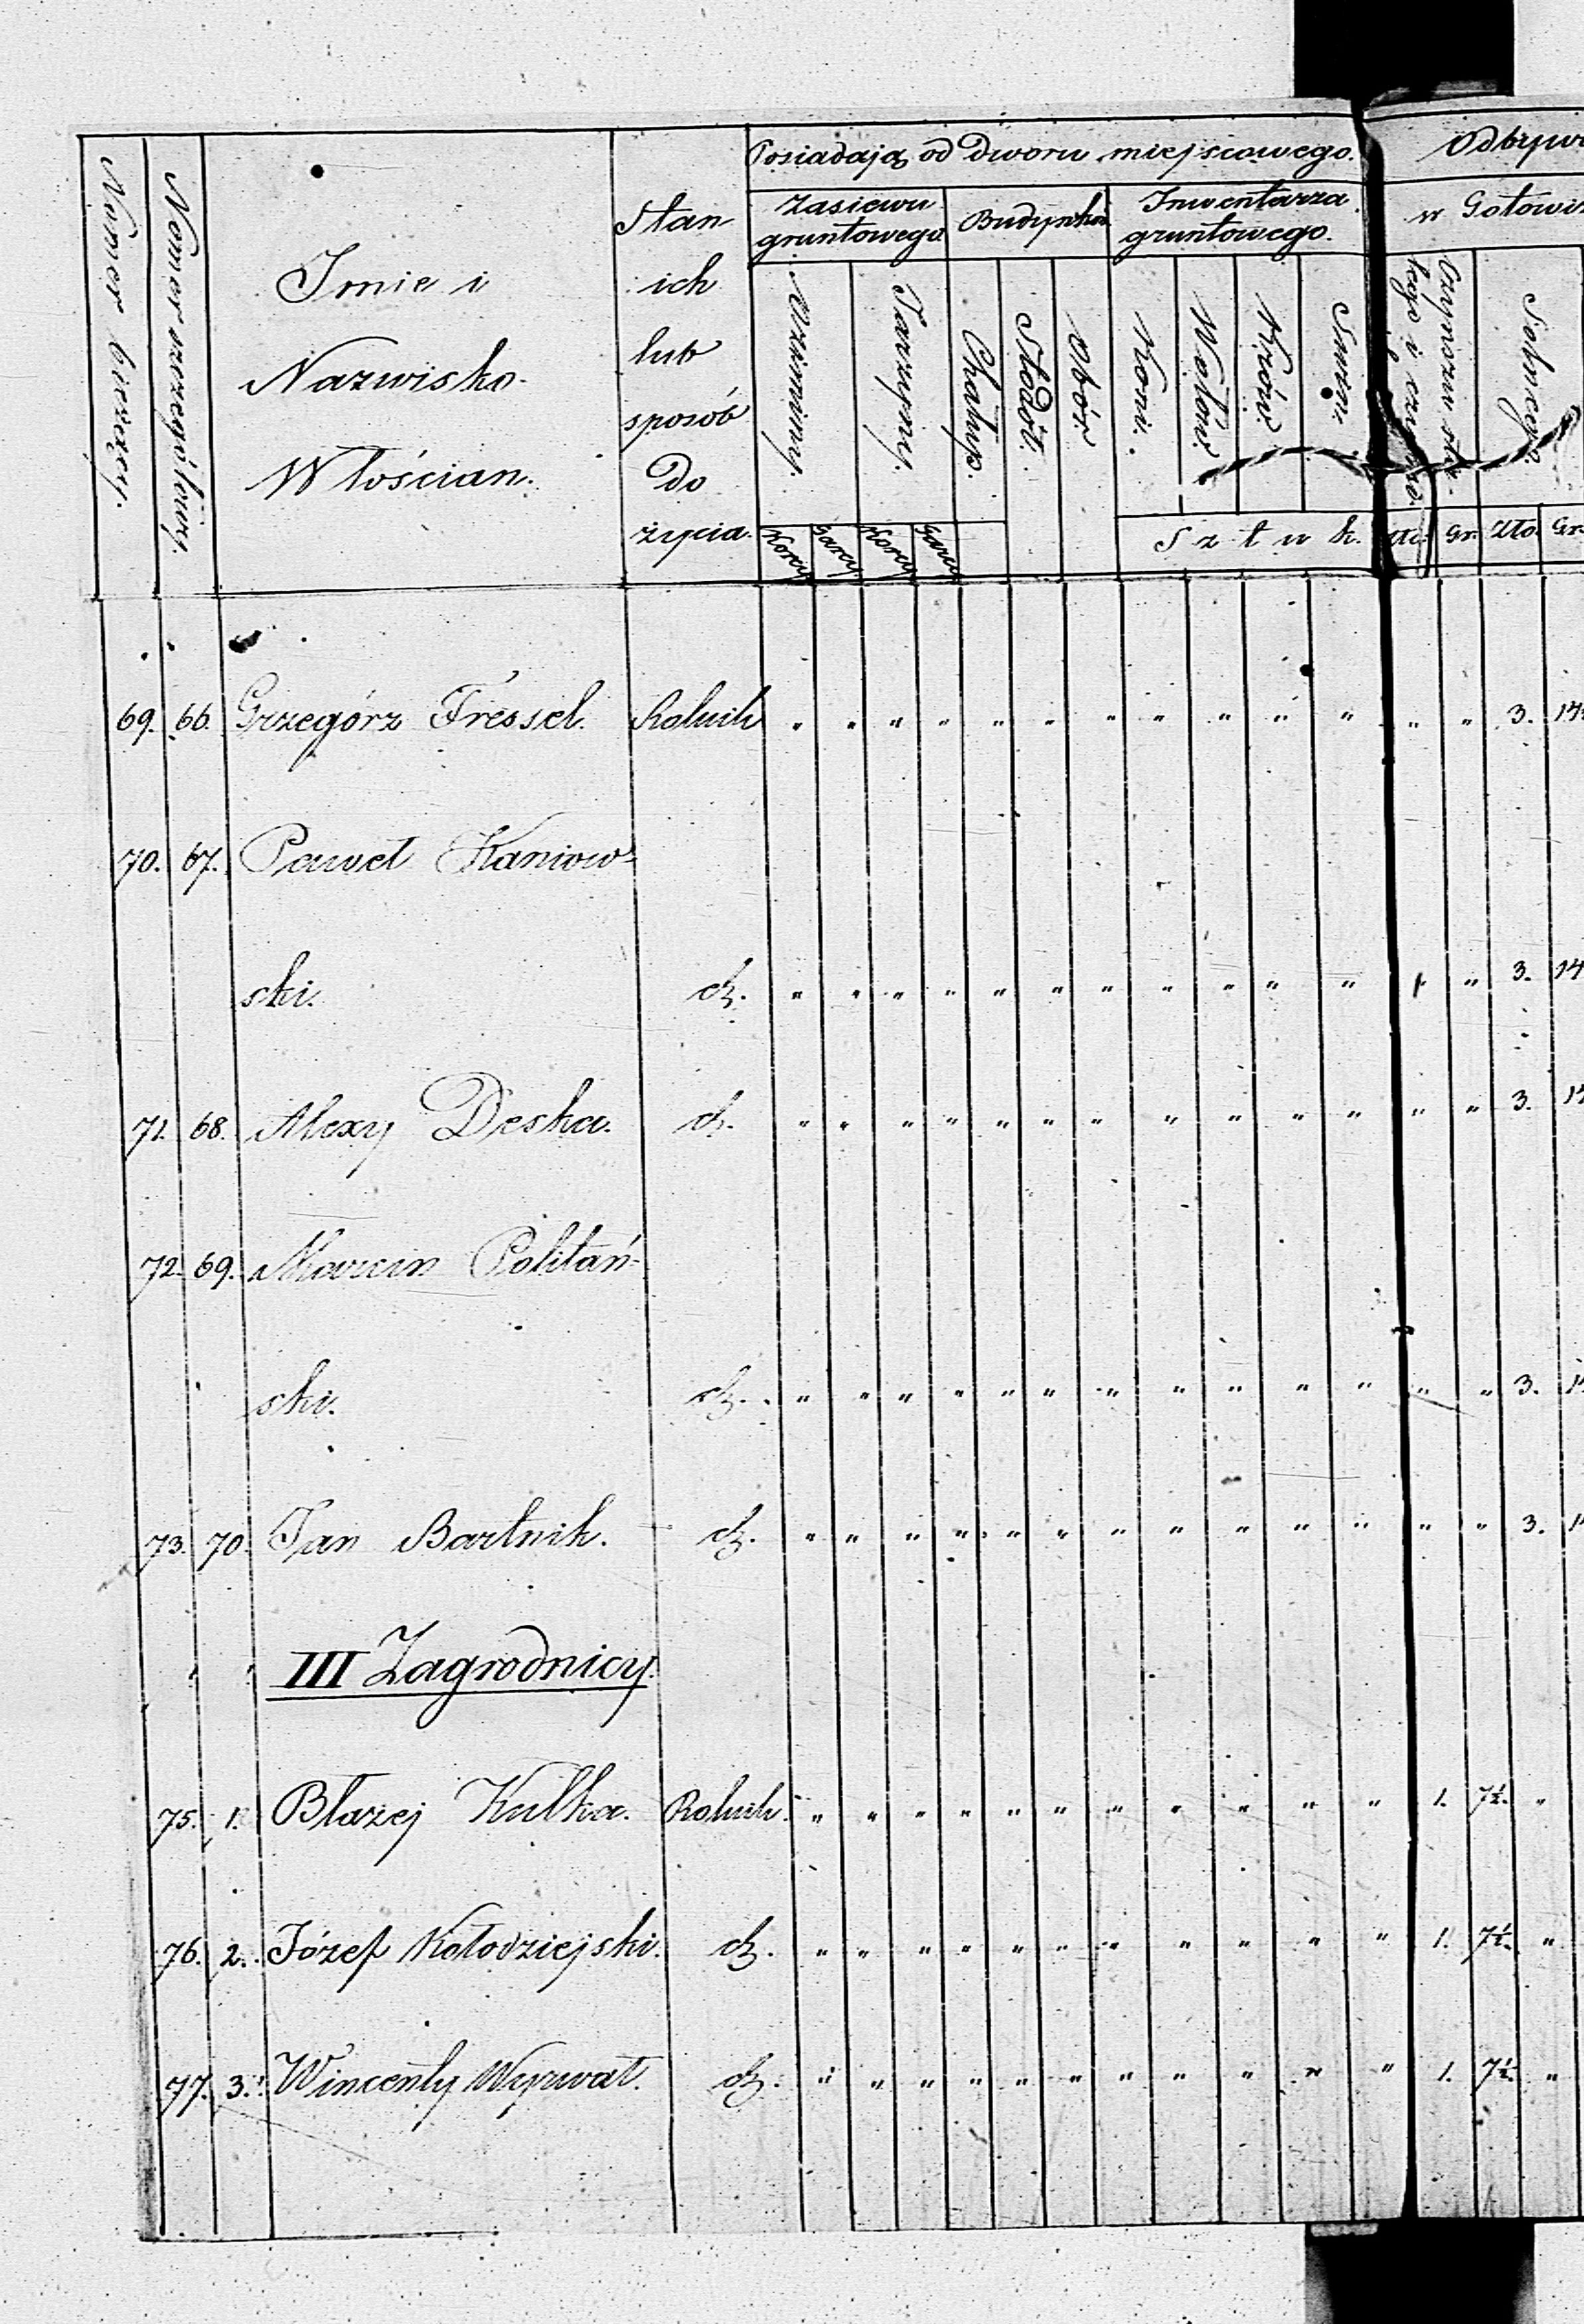 Posiadają od dworu miejscowego.
w Gotowi
Zasiewu gruntowego
Budynków
Inwentarza gruntowego.
Numer bieżący.
Numer szczegółowy.
Imie i
Nazwisko
Włościan.
Stan
ich
lub
sposób
do
życia.
Oziminy
Jarzyny.
Chałup.
Stodół.
Obór.
Koni.
Wołów.
Krów.
Solnego
Korcy Garcy Korcy Garcy
Sztuk. Gr. Zło. Gr.
69. 66. Grzegórz Fressel. Rolnik " " " " " " " " " " " " " 3. 14
70. 67. Paweł Kaniow-
ski. dt. " " " " " " " " " " " " " 3. 14
71. 68. Alexy Deska. dt. " " " " " " " " " " " " " 3. 1
72. 69. Marcin Politań-
ski. dt. " " " " " " " " " " " " " 3. 1
73. 70. Jan Bartnik. dt. " " " " " " " " " " " " " 3. 1
III Zagrodnicy.
75. 1. Błażej Kulka. Rolnik. " " " " " " " " " " " 1. 7½. "
76. 2. Józef Kołodziejski. dt. " " " " " " " " " " " 1. 7½. "
77. 3. Wincenty Wyrwał. dt. " " " " " " " " " " " 1. 7½. "